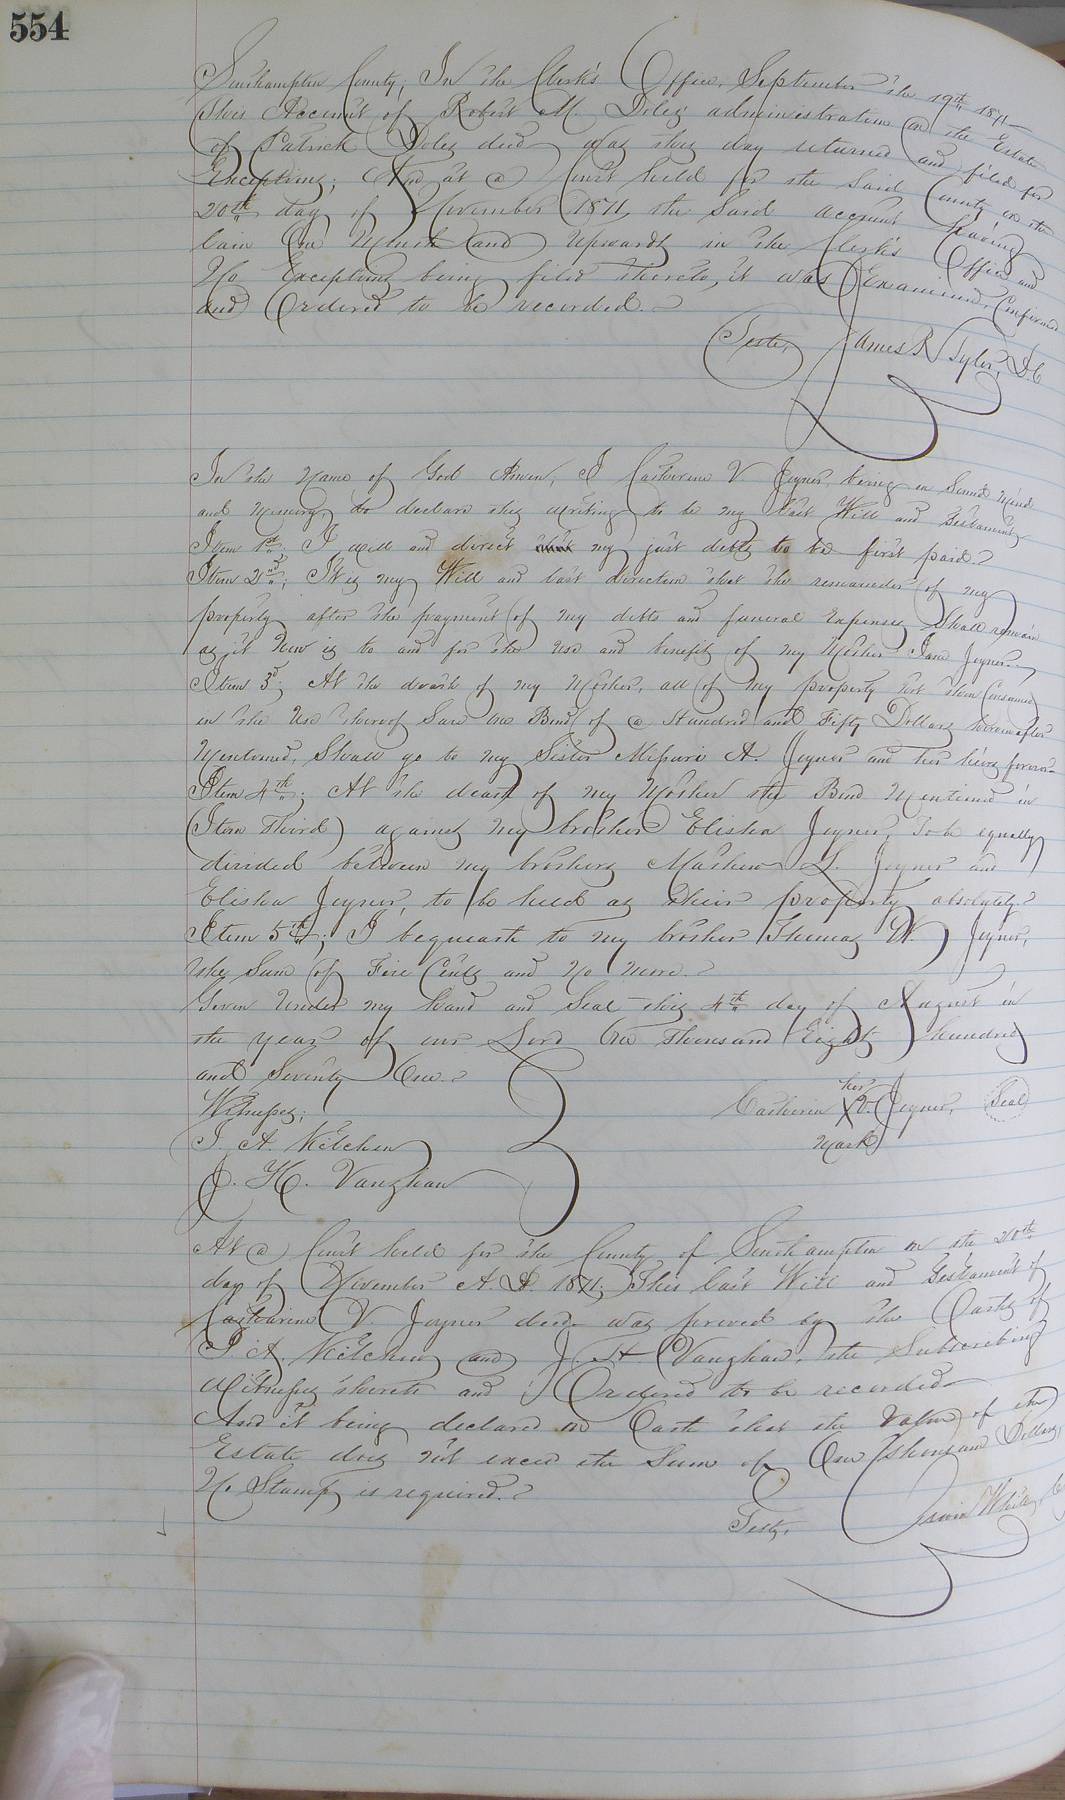 554
Southampton County, In the Clerk's Office, September the 19th 1871
This Account of Robert M. Doles administration on the Estate
of Patrick Doles decd was this day returned and filed for
Exceptions; And at a Court held for the said County on the
20th day of November 1871, the said account having
lain One Month and Upwards in the Clerk's Office and
No Exceptions being filed thereto, it was Examined, Confirmed
and Ordered to be recorded.
Teste, James R Tyler, D.C
In the Name of God Amen, I Catherine V. Joyner, being in Sound Mind
and Memory, do declare this writing to be my last Will and Testament,
Item 1st I will and direct my just debts to be first paid.
Item 2nd; It is my Will and last direction that the remainder of my
property after the payment of my debts and funeral Expenses shall remain
as it Now is to and for the Use and benefit of my Mother Jane Joyner.
Item 3d; At the death of my Mother, all of my property not then Consumed
in the Use thereof Save One Bond of a Hundred and Fifty Dollars hereinafter
Mentioned, Shall go to my Sister Missouri A. Joyner and her heirs forever
Item 4th; At the death of my Mother the Bond Mentioned in
(Item Third) against my brother Elisha Joyner, To be equally
divided between my brothers Mathew L. Joyner and
Elisha Joyner, to be held as their property absolutely.
Item 5th; I bequeath to my brother Thomas W. Joyner,
the Sum of Five Cents and No More.
Given Under my hand and Seal this 4th day of August in
the year of our Lord One Thousand Eight hundred
and Seventy One.
Witnesses;
her
Catherin X V. Joyner, Seal
mark
J. A. Kitchen
J. H. Vaughan
At a Court held for the County of Southampton on the 20th
day of November A. D. 1871; This last Will and Testament of
Catharine V. Joyner decd was proved by the Oaths of
J. A. Kitchen and J. H. Vaughan, the Subscribing
Witnesses thereto and Ordered to be recorded
And it being declared on Oath that the Value of the
Estate does not exceed the Sum of One thousand Dollars,
No Stamp is required.
Teste, White,